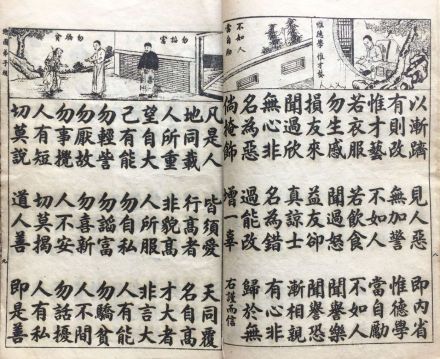 惟德學 惟才藝
不如人
當自勵
以漸躋 見人惡 即內省
有則改 無加警 惟德學
惟才藝 不如人 當自勵
若衣服 若飲食 不如人
勿生慼 聞過怒 聞譽樂
損友來 益友卻 聞譽恐
聞過欣 直諒士 漸相親
無心非 名為錯 有心非
名為惡 過能改 歸於無
倘掩飾 增一辜 右謹而信
八
勿諂富
勿驕貧
凡是人 皆須愛 天同覆
地同載 行高者 名自高
人所重 非貌高 才大者
望自大 人所服 非言大
己有能 勿自私 人有能
勿輕訾 勿諂富 勿驕貧
勿厭故 勿喜新 人不閒
勿事攪 人不安 勿話擾
人有短 切莫揭 人有私
切莫說 道人善 即是善
九